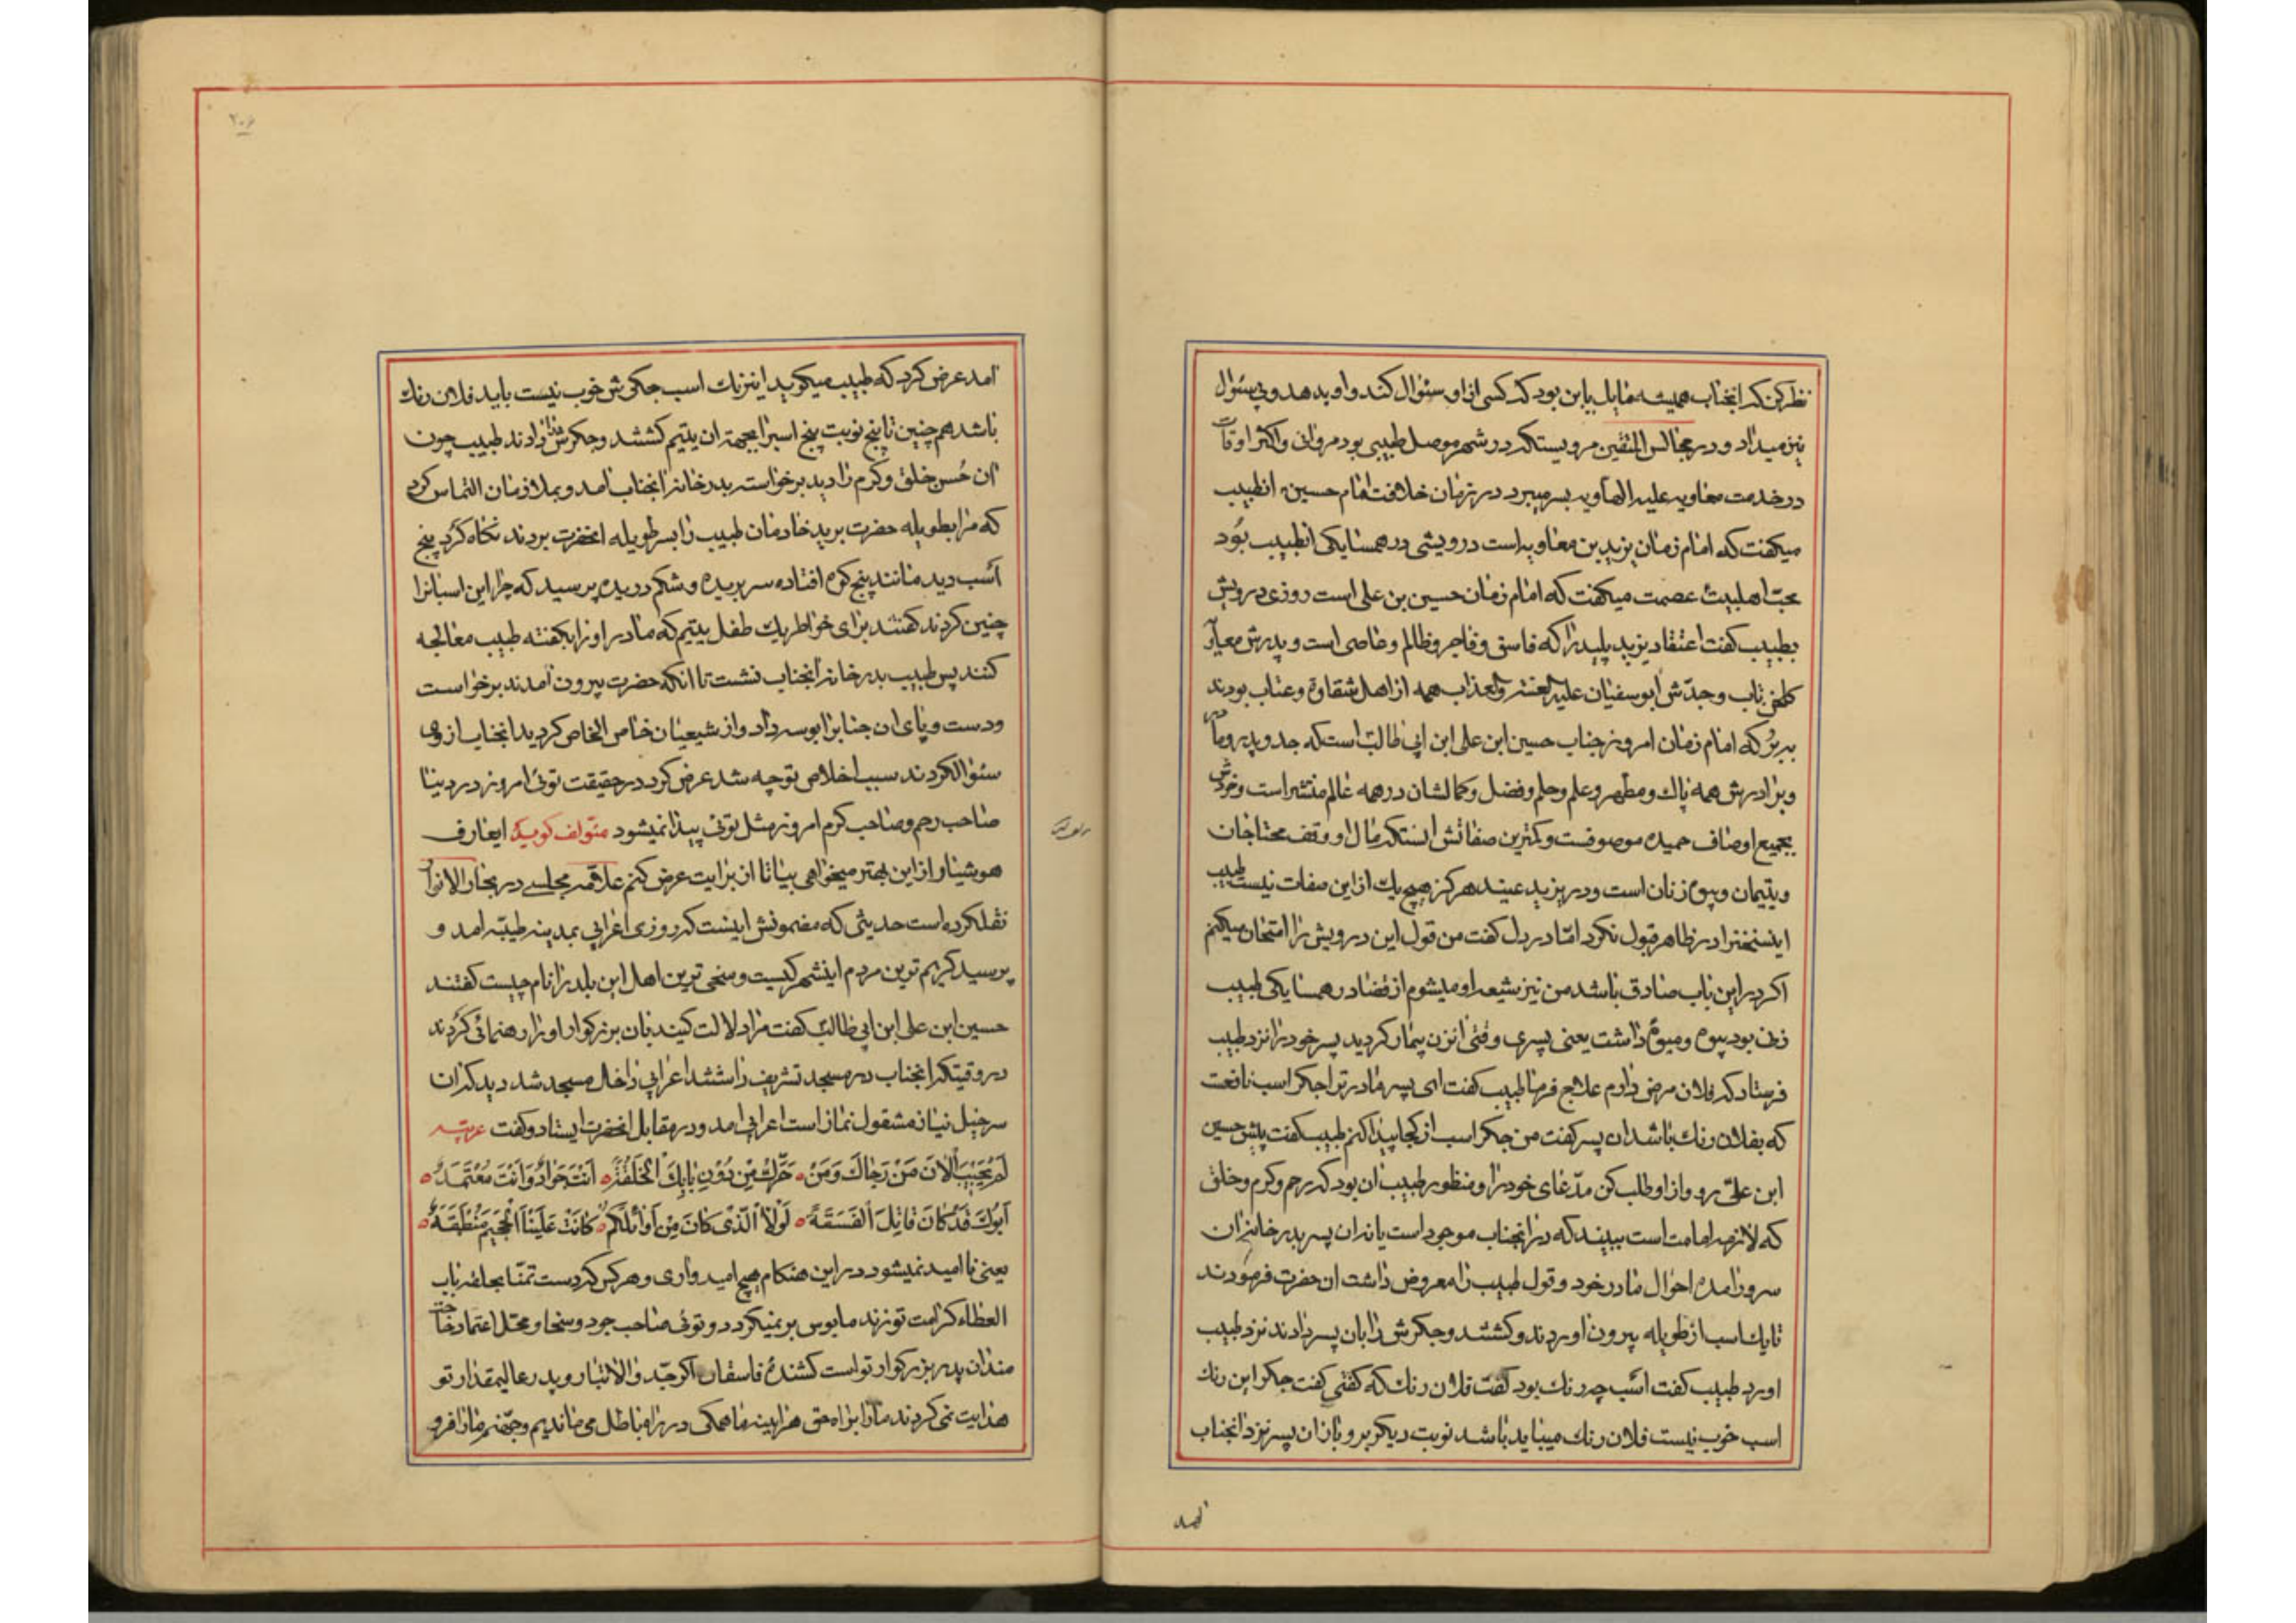 نظر کن که انجناب همیشه مایل باین بود که کسی از او سئوال کند و او بدهد و بی سئوال
نیز میداد و در مجالس المتقین مرویستکه در شهر موصل طبیبی بود مروانی و اکثر اوقات
در خدمت معاویه علیه الهاویه بسر میبرد در زمان خلافت امام حسین انطبیب
میگفت که امام زمان یزید بن معاویه است درویشی در همسایکی انطبیب بود
محب اهلبیت عصمت میکفت که امام زمان حسین بن علی است روزی درویش
بطبیب کفت اعتقاد یزید پلید را که فاسق و فاجر و ظالم و عاصی است و پدرش معاویه
و جدّش ابوسفیان علیه لعنته والعذاب همه از اهل شقاوة و عناب بودند
ببر که امام زمان امروز جناب حسین ابن علی ابن ابی طالب است که جد و پدر و مادر
و برادرش همه پاک و مطهر و علم و حلم و فضل و کمالشان در همه عالم منتشر است و خودش
بجمیع اوصاف حمیده موصوفست و کمترین صفاتش اینستکه مال او وقف محتاجان
و یتیمان و بیوه زنان است و در یزید عنید هرکز هیچ یک از این صفات نیست طبیب
اینسخنرا در ظاهر قبول نکرد امّا در دل کفت من قول این درویش را امتحان میکنم
اکر در این باب صادق باشد من نیز شیعه او میشوم از قضا در همسایکی طبیب
زنی بود بیوه و میوهٔ داشت یعنی پسری وقتی انزن بیمار کردید پسر خود را نزد طبیب
فرستاد که فلان مرض دارم علاج فرما طبیب کفت ای پسر مادر ترا جکر اسب نافعست
که بفلان رنک باشد ان پسر کفت من جکر اسب از کجا پیدا کنم طبیب کفت پیش حسین
ابن علیّ رو و از او طلب کن مدّعای خود را و منظور طبیب ان بود که رحم و کرم و خلق
که لازمه امامت است ببیند که در انجناب موجود است یا نه ان پسر بدر خانه ان
سرور امده احوال مادر خود و قول طبیب را معروض داشت ان حضرت فرمودند
تا یک اسب از طویله بیرون اوردند و کشتند و جکرش را بان پسر دادند نزد طبیب
اورد طبیب کفت اسب چه رنک بود کفت فلان رنک که کفتی کفت جکر این رنک
اسب خوب نیست فلان رنک میباید باشد نوبت دیکر برو باز ان پسر نزد انجناب
امد
۲۰۶
امد عرض کرد که طبیب میکوید اینرنک اسب جکرش خوب نیست باید فلان رنک
باشد هم چنین تا پنج نوبت پنج اسبرا بجهة ان یتیم کشتند و جکرش را دادند طبیب چون
ان حُسن خلق و کرم را دید برخواسته بدر خانه انجناب امد و بملازمان التماس کرد
که مرا بطویله حضرت برید خادمان طبیب را بسر طویله انحضرت بردند نکاه کرد پنج
اسب دید مانند پنج کوه افتاده سر بریده و شکم دریده پرسید که چرا این اسبانرا
چنین کردند کفتند برای خواطر یک طفل یتیم که مادر او را بکفته طبیب معالجه
کنند پس طبیب بدر خانه انجناب نشست تا انکه حضرت بیرون امدند برخواست
و دست و پای ان جنابرا بوسه داد و از شیعیان خاص الخاص کردید انجناب از وی
سئوالکردند سبب اخلاص تو چه شد عرض کرد در حقیقت توئی امروز در دنیا
صاحب رحم و صاحب کرم امروز مثل توئی پیدا نمیشود مئولف کوید ایعارف
هوشیار از این بهتر میخواهی بیا تا از برایت عرض کنم علاّمه مجلسے در بحار الانوار
نقلکرده است حدیثی که مضمونش اینست که روزی اعرابی بمدینه طیبّه امد و
پرسید کریم ترین مردم اینشهر کیست و سخی ترین اهل این بلد را نام چیست کفتند
حسین ابن علی ابن ابی طالب کفت مرا دلالت کنید بان بزرکوار او را رهنمائی کردند
در وقتیکه انجناب در مسجد تشریف داشتند اعرابی داخل مسجد شد دید که ان
سرخیل نیاز مشغول نماز است اعرابی امد و در مقابل انحضرت ایستاد و کفت عربیه
لَمْ یَخِبِ الْانَ مَنْ رَجَاكَ وَمَنْ ۰ حَرَّكَ مِنْ دُوْنِ بَابِكَ الْحَلَقَةَ ۰ اَنْتَ جَوٰادٌ وَ اَنْتَ مُعْتَمَدٌ ۰
اَبُوْكَ قَدْ کَانَ قَاتِلَ الْفَسَقَةَ ۰ لَوْلَا الَّذیْ کَانَ مِنْ اَوَائِلِکُمْ ۰ کَانَتْ عَلَیْنَا الْجَحِیْمُ مُنْطَبِقَةٌ ۰
یعنی نا امید نمیشود در این هنکام هیچ امیدواری و هر کس که دست تمنّا بحلقه باب
العطاء کرامت تو زند مایوس بر نمیکردد و توئی صاحب جود و سخا و محّل اعتماد حاجت
مندان پدر بزرکوار تو است کشندهٔ فاسقان اکر جدّ والاتبار و پدر عالیمقدار تو
هدایت نمی کردند ما را براه حق هر اینه ما همکی در راه باطل می ماندیم و جهّنم ما را فرو